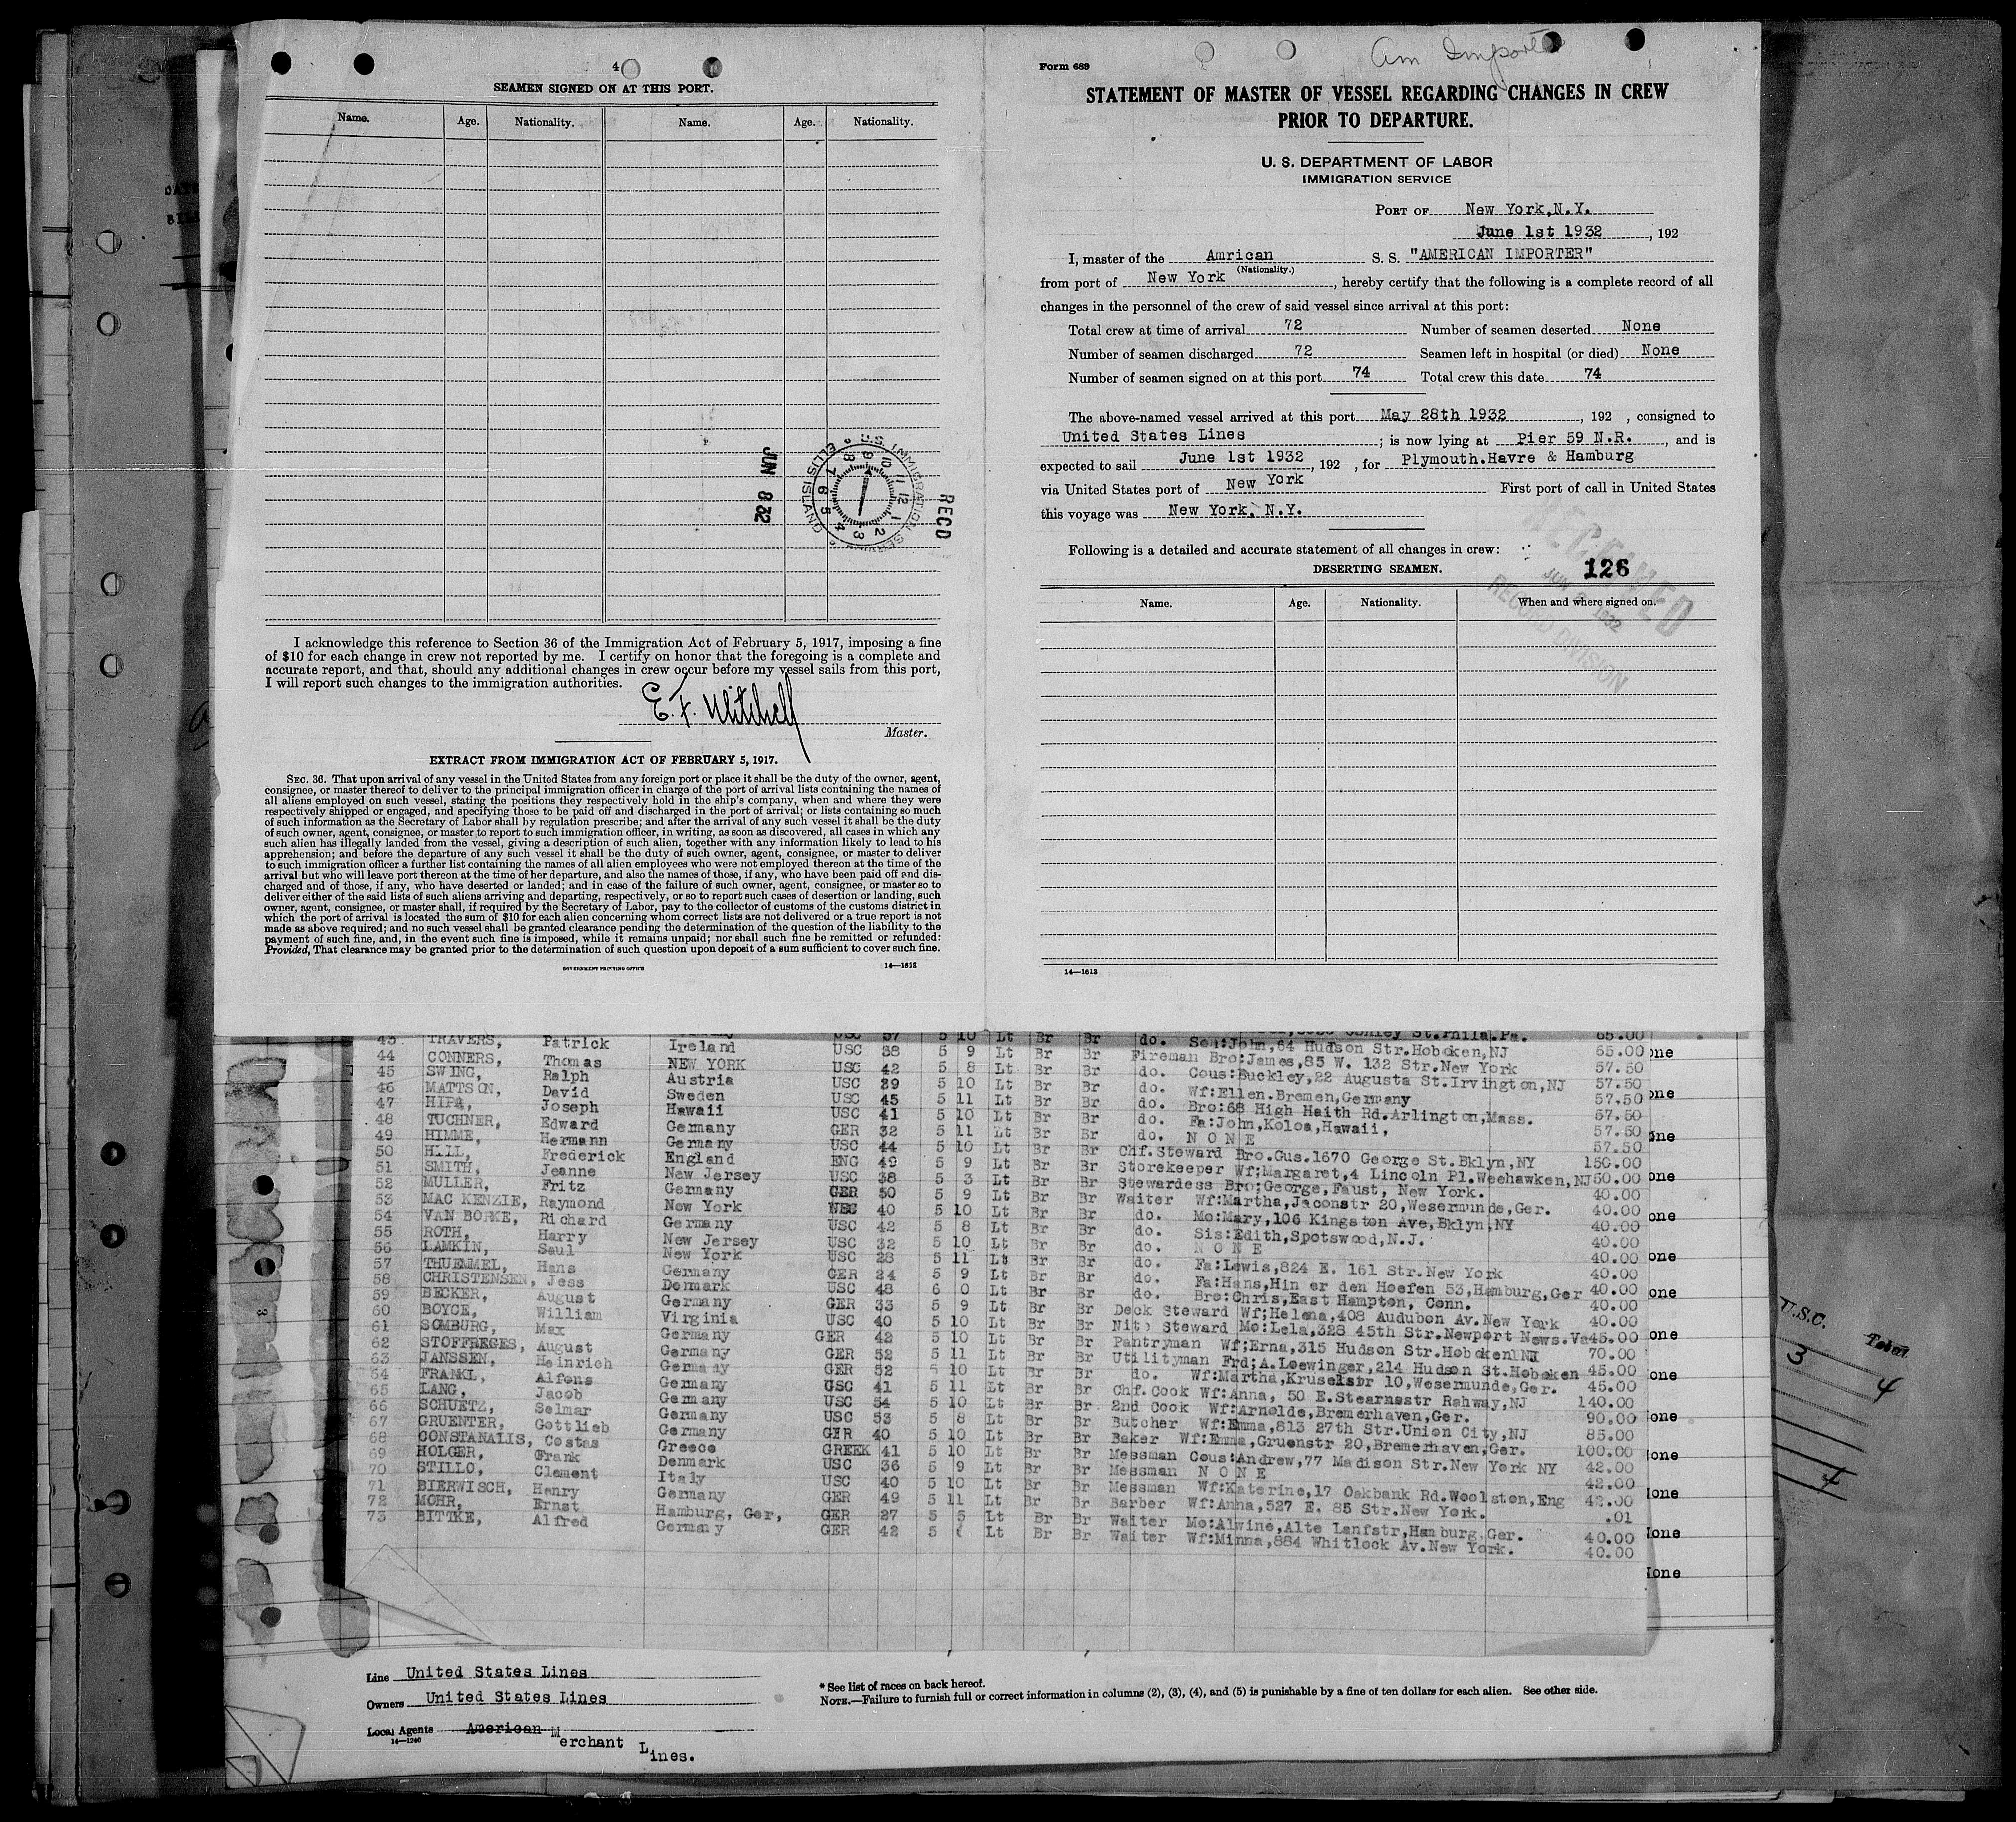 4
SEAMEN SIGNED ON AT THIS PORT.
Name. Age. Nationality. Name. Age. Nationality.
JUN 8 32
U.S. IMMIGRATION SERVICE
ELLIS ISLAND
RECD
I acknowledge this reference to Section 36 of the Immigration Act of February 5, 1917, imposing a fine
of $10 for each change in crew not reported by me. I certify on honor that the foregoing is a complete and
accurate report, and that, should any additional changes in crew occur before my vessel sails from this port,
I will report such changes to the immigration authorities.
E. F. Mitchell
Master.
EXTRACT FROM IMMIGRATION ACT OF FEBRUARY 5, 1917.
SEC. 36. That upon arrival of any vessel in the United States from any foreign port or place it shall be the duty of the owner, agent,
consignee, or master thereof to deliver to the principal immigration officer in charge of the port of arrival lists containing the names of
all aliens employed on such vessel, stating the positions they respectively hold in the ship's company, when and where they were
respectively shipped or engaged, and specifying those to be paid off and discharged in the port of arrival; or lists containing so much
of such information as the Secretary of Labor shall by regulation prescribe; and after the arrival of any such vessel it shall be the duty
of such owner, agent, consignee, or master to report to such immigration officer, in writing, as soon as discovered, all cases in which any
such alien has illegally landed from the vessel, giving a description of such alien, together with any information likely to lead to his
apprehension; and before the departure of any such vessel it shall be the duty of such owner, agent, consignee, or master to deliver
to such immigration officer a further list containing the names of all alien employees who were not employed thereon at the time of the
arrival but who will leave port thereon at the time of her departure, and also the names of those, if any, who have been paid off and dis-
charged and of those, if any, who have deserted or landed; and in case of the failure of such owner, agent, consignee, or master so to
deliver either of the said lists of such aliens arriving and departing, respectively, or so to report such cases of desertion or landing, such
owner, agent, consignee, or master shall, if required by the Secretary of Labor, pay to the collector of customs of the customs district in
which the port of arrival is located the sum of $10 for each alien concerning whom correct lists are not delivered or a true report is not
made as above required; and no such vessel shall be granted clearance pending the determination of the question of the liability to the
payment of such fine, and, in the event such fine is imposed, while it remains unpaid; nor shall such fine be remitted or refunded:
Provided, That clearance may be granted prior to the determination of such question upon deposit of a sum sufficient to cover such fine.
GOVERNMENT PRINTING OFFICE 14—1613
Am Importer
Form 689
STATEMENT OF MASTER OF VESSEL REGARDING CHANGES IN CREW
PRIOR TO DEPARTURE.
U. S. DEPARTMENT OF LABOR
IMMIGRATION SERVICE
PORT OF New York, N.Y.
June 1st 1932, 192
I, master of the Amrican S. S. "AMERICAN IMPORTER"
(Nationality.)
from port of New York, hereby certify that the following is a complete record of all
changes in the personnel of the crew of said vessel since arrival at this port:
Total crew at time of arrival 72 Number of seamen deserted None
Number of seamen discharged 72 Seamen left in hospital (or died) None
Number of seamen signed on at this port 74 Total crew this date 74
The above-named vessel arrived at this port May 28th 1932, 192 , consigned to
United States Lines; is now lying at Pier 59 N.R., and is
expected to sail June 1st 1932, 192 , for Plymouth.Havre & Hamburg
via United States port of New York First port of call in United States
this voyage was New York, N.Y.
Following is a detailed and accurate statement of all changes in crew:
DESERTING SEAMEN. 126
RECEIVED
JUN 1932
RECORD DIVISION
Name. Age. Nationality. When and where signed on.
14—1613
43 TRAVERS, Patrick Ireland USC 37 5 10 Lt Br Br do. St.Phila.Pa. 65.00
44 CONNERS, Thomas NEW YORK USC 38 5 9 Lt Br Br Fireman Son:John,64 Hudson Str.Hoboken,NJ 65.00
45 SWING, Ralph Austria USC 42 5 8 Lt Br Br do. Bro:James,85 W. 132 Str.New York 57.50
46 MATTSON, David Sweden USC 39 5 10 Lt Br Br do. Cous:Buckley,22 Augusta St.Irvington,NJ 57.50
47 HIPA, Joseph Hawaii USC 45 5 11 Lt Br Br do. Wf:Ellen.Bremen,Germany 57.50
48 TUCHNER, Edward Germany USC 41 5 10 Lt Br Br do. Bro:68 High Haith Rd.Arlington,Mass. 57.50
49 HIMME, Hermann Germany GER 32 5 11 Lt Br Br do. Fa:John,Koloa,Hawaii, 57.50
50 HILL, Frederick England USC 44 5 10 Lt Br Br Chf.Steward N O N E 57.50
51 SMITH, Jeanne New Jersey ENG 49 5 9 Lt Br Br Storekeeper Bro.Gus.1670 George St.Bklyn,NY 150.00
52 MULLER, Fritz Germany USC 38 5 3 Lt Br Br Stewardess Wf:Margaret,4 Lincoln Pl.Weehawken,NJ 50.00
53 MAC KENZIE, Raymond New York GER 50 5 9 Lt Br Br Waiter Bro;George,Faust, New York. 40.00
54 VAN BORKE, Richard Germany USC 40 5 10 Lt Br Br do. Wf:Martha,Jaconstr 20,Wesermunde,Ger. 40.00
55 ROTH, Harry New Jersey USC 42 5 8 Lt Br Br do. Mo:Mary,106 Kingston Ave,Bklyn,NY 40.00
56 LAMKIN, Saul New York USC 32 5 10 Lt Br Br do. Sis:Edith,Spotswood,N.J. 40.00
57 THUEMMEL, Hans Germany USC 28 5 11 Lt Br Br do. N O N E 40.00
58 CHRISTENSEN, Jess Denmark GER 24 5 9 Lt Br Br do. Fa:Lewis,824 E. 161 Str.New York 40.00
59 BECKER, August Germany USC 48 6 0 Lt Br Br do. Fa:Hans,Hin er den Hoefen 53,Hamburg,Ger 40.00
60 BOYCE, William Virginia GER 33 5 9 Lt Br Br Deck Steward Bro:Chris,East Hampton, Conn. 40.00
61 SOMBURG, Max Germany USC 40 5 10 Lt Br Br Nite Steward Wf;Helena,408 Audubon Av.New York 40.00
62 STOFFREGES, August Germany GER 42 5 10 Lt Br Br Pantryman Mo:Lela,328 45th Str.Newport News.Va 45.00
63 JANSSEN, Heinrich Germany GER 52 5 11 Lt Br Br Utilityman Wf;Erna,315 Hudson Str.Hoboken NJ 70.00
64 FRANKL, Alfons Germany GER 52 5 10 Lt Br Br do. Frd;A.Loewinger,214 Hudson St.Hoboken 45.00
65 LANG, Jacob Germany USC 41 5 11 Lt Br Br Chf.Cook Wf:Martha,Kruselstr 10,Wesermunde,Ger. 45.00
66 SCHUETZ, Selmar Germany USC 54 5 10 Lt Br Br 2nd Cook Wf:Anna, 50 E.Stearnsstr Rahway,NJ 140.00
67 GRUENTER, Gottlieb Germany USC 53 5 8 Lt Br Br Butcher Wf:Arnolde,Bremerhaven,Ger. 90.00
68 CONSTANALIS, Costas Greece GER 40 5 10 Lt Br Br Baker Wf:Emma,813 27th Str.Union City,NJ 85.00
69 HOLGER, Frank Denmark GREEK 41 5 10 Lt Br Br Messman Wf:Emma,Gruenstr 20,Bremerhaven,Ger. 100.00
70 STILLO, Clement Italy USC 36 5 9 Lt Br Br Messman Cous:Andrew,77 Madison Str.New York NY 42.00
71 BIERWISCH, Henry Germany USC 40 5 10 Lt Br Br Messman N O N E 42.00
72 MOHR, Ernst Hamburg, Ger, GER 49 5 11 Lt Br Br Barber Wf:Katerine,17 Oakbank Rd.Woolston,Eng 42.00
73 BITTKE, Alfred Germany GER 27 5 5 Lt Br Br Waiter Wf:Anna,527 E. 85 Str.New York. .01
GER 42 5 Lt Br Br Waiter Mo:Alwine,Alte Lanfstr,Hamburg,Ger. 40.00
Wf:Minna,884 Whitlock Av.New York. 40.00
U.S.C. Total
3 4
Line United States Lines
Owners United States Lines
Local Agents American Merchant Lines.
14—1240
* See list of races on back hereof.
NOTE.—Failure to furnish full or correct information in columns (2), (3), (4), and (5) is punishable by a fine of ten dollars for each alien. See other side.